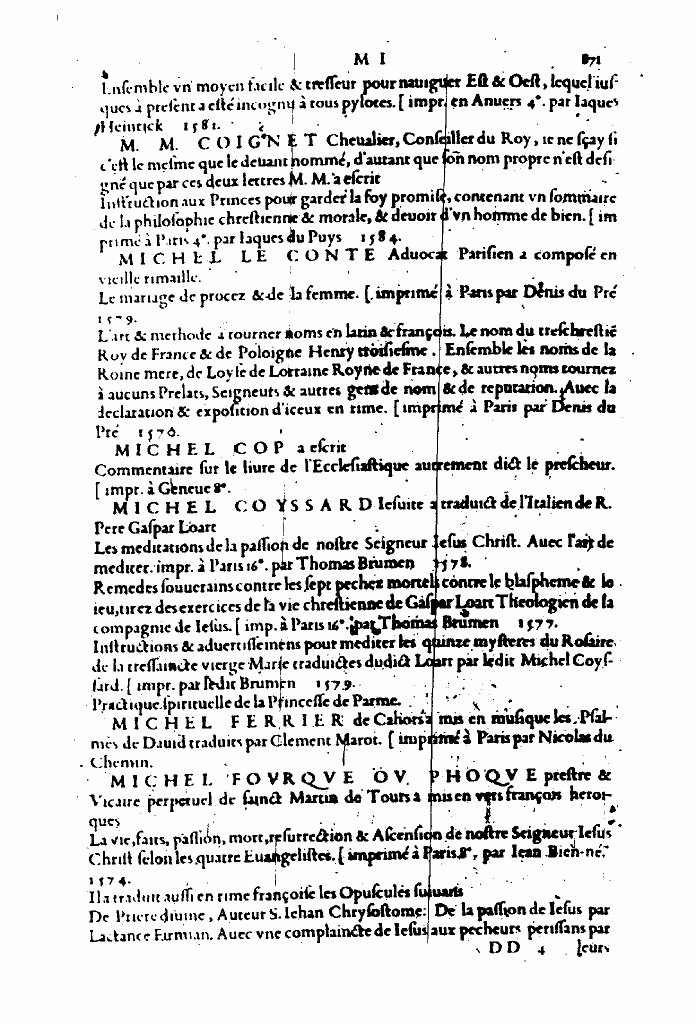 M I 871
Enſemble vn moyen facile & treſſeur pour nauiguer Eſt & Oeſt, lequel iuſ-
ques à preſent a eſté incognu à tous pylotes. [ impr. en Anuers 4°. par Iaques
Heinrick 1581.
M. M. COIGNET Cheualier, Conſeiller du Roy, ie ne ſçay ſi
c'eſt le meſme que le deuant nommé, d'autant que ſon nom propre n'eſt deſi-
gné que par ces deux lettres M. M. a eſcrit
Inſtruction aux Princes pour garder la foy promiſe, contenant vn ſommaire
de la philoſophie chreſtienne & morale, & deuoir d'vn homme de bien. [ im
primé à Paris 4°. par Iaques du Puys 1584.
MICHEL LE CONTE Aduocat Pariſien a compoſé en
vieille rimaille.
Le mariage de procez & de la femme. [ imprimé à Paris par Denis du Pré
1579.
L'art & methode a tourner noms en latin & françois. Le nom du treſchreſtiē
Roy de France & de Poloigne Henry troiſieſme. Enſemble les noms de la
Roine mere, de Loyſe de Lorraine Royne de France, & autres noms tournez
à aucuns Prelats, Seigneurs & autres gens de nom & de reputation. Auec la
declaration & expoſition d'iceux en rime. [ imprimé à Paris par Denis du
Pré 1576.
MICHEL COP a eſcrit
Commentaire ſur le liure de l'Eccleſiaſtique autrement dict le preſcheur.
[ impr. à Geneue 8°.
MICHEL COYSSARD Ieſuite a traduict de l'Italien de R.
Pere Gaſpar Loart
Les meditations de la paſſion de noſtre Seigneur Ieſus Chriſt. Auec l'art de
mediter. impr. à Paris 16°. par Thomas Brumen 1578.
Remedes ſouuerains contre les ſept pechez mortels contre le blaſpheme & le
ieu, tirez des exercices de la vie chreſtienne de Gaſpar Loart Theologien de la
compagnie de Ieſus. [ imp. à Paris 16°. par Thomas Brumen 1577.
Inſtructions & aduertiſſemens pour mediter les quinze myſteres du Roſaire
de la treſſaincte vierge Marie traduictes dudict Loart par ledit Michel Coyſ-
ſard. [ impr. par ledit Brumen 1579.
Practique ſpirituelle de la Princeſſe de Parme.
MICHEL FERRIER de Cahors a mis en muſique les Pſal-
mes de Dauid traduits par Clement Marot. [ imprimé à Paris par Nicolas du
Chemin.
MICHEL FOVRQVE OV PHOQVE preſtre &
Vicaire perpetuel de ſainct Martin de Tours a mis en vers françois heroï-
ques
La vie, faits, paſſion, mort, reſurrection & Aſcenſion de noſtre Seigneur Ieſus
Chriſt ſelon les quatre Euangeliſtes. [ imprimé à Paris 8°, par Iean Bien-né.
1574.
Il a traduit auſſi en rime françoiſe les Opuſcules ſuiuans
De Priere diuine, Auteur S. Iehan Chryſoſtome: De la paſſion de Ieſus par
Lactance Firmian. Auec vne complaincte de Ieſus aux pecheurs periſſans par
DD 4 leurs